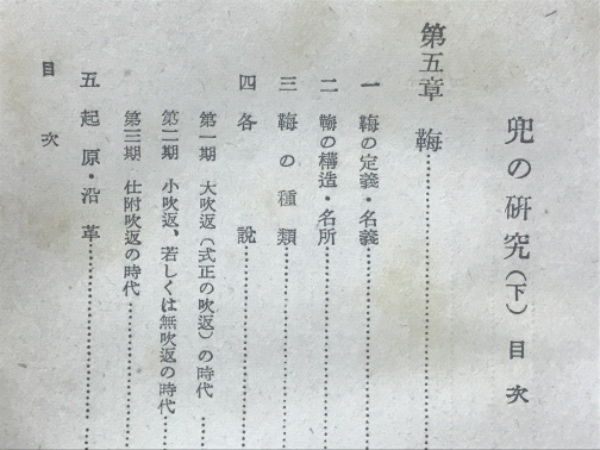 兜の研究(下) 目次
第五章 鞠
一 鞠の定義・名義
二 鞠の構造・名所
三 鞠の種類
四 各説
第一期 大吹返(式正の吹返)の時代
第二期 小吹返、若しくは無吹返の時代
第三期 仕附吹返の時代
五 起原・沿革
目次